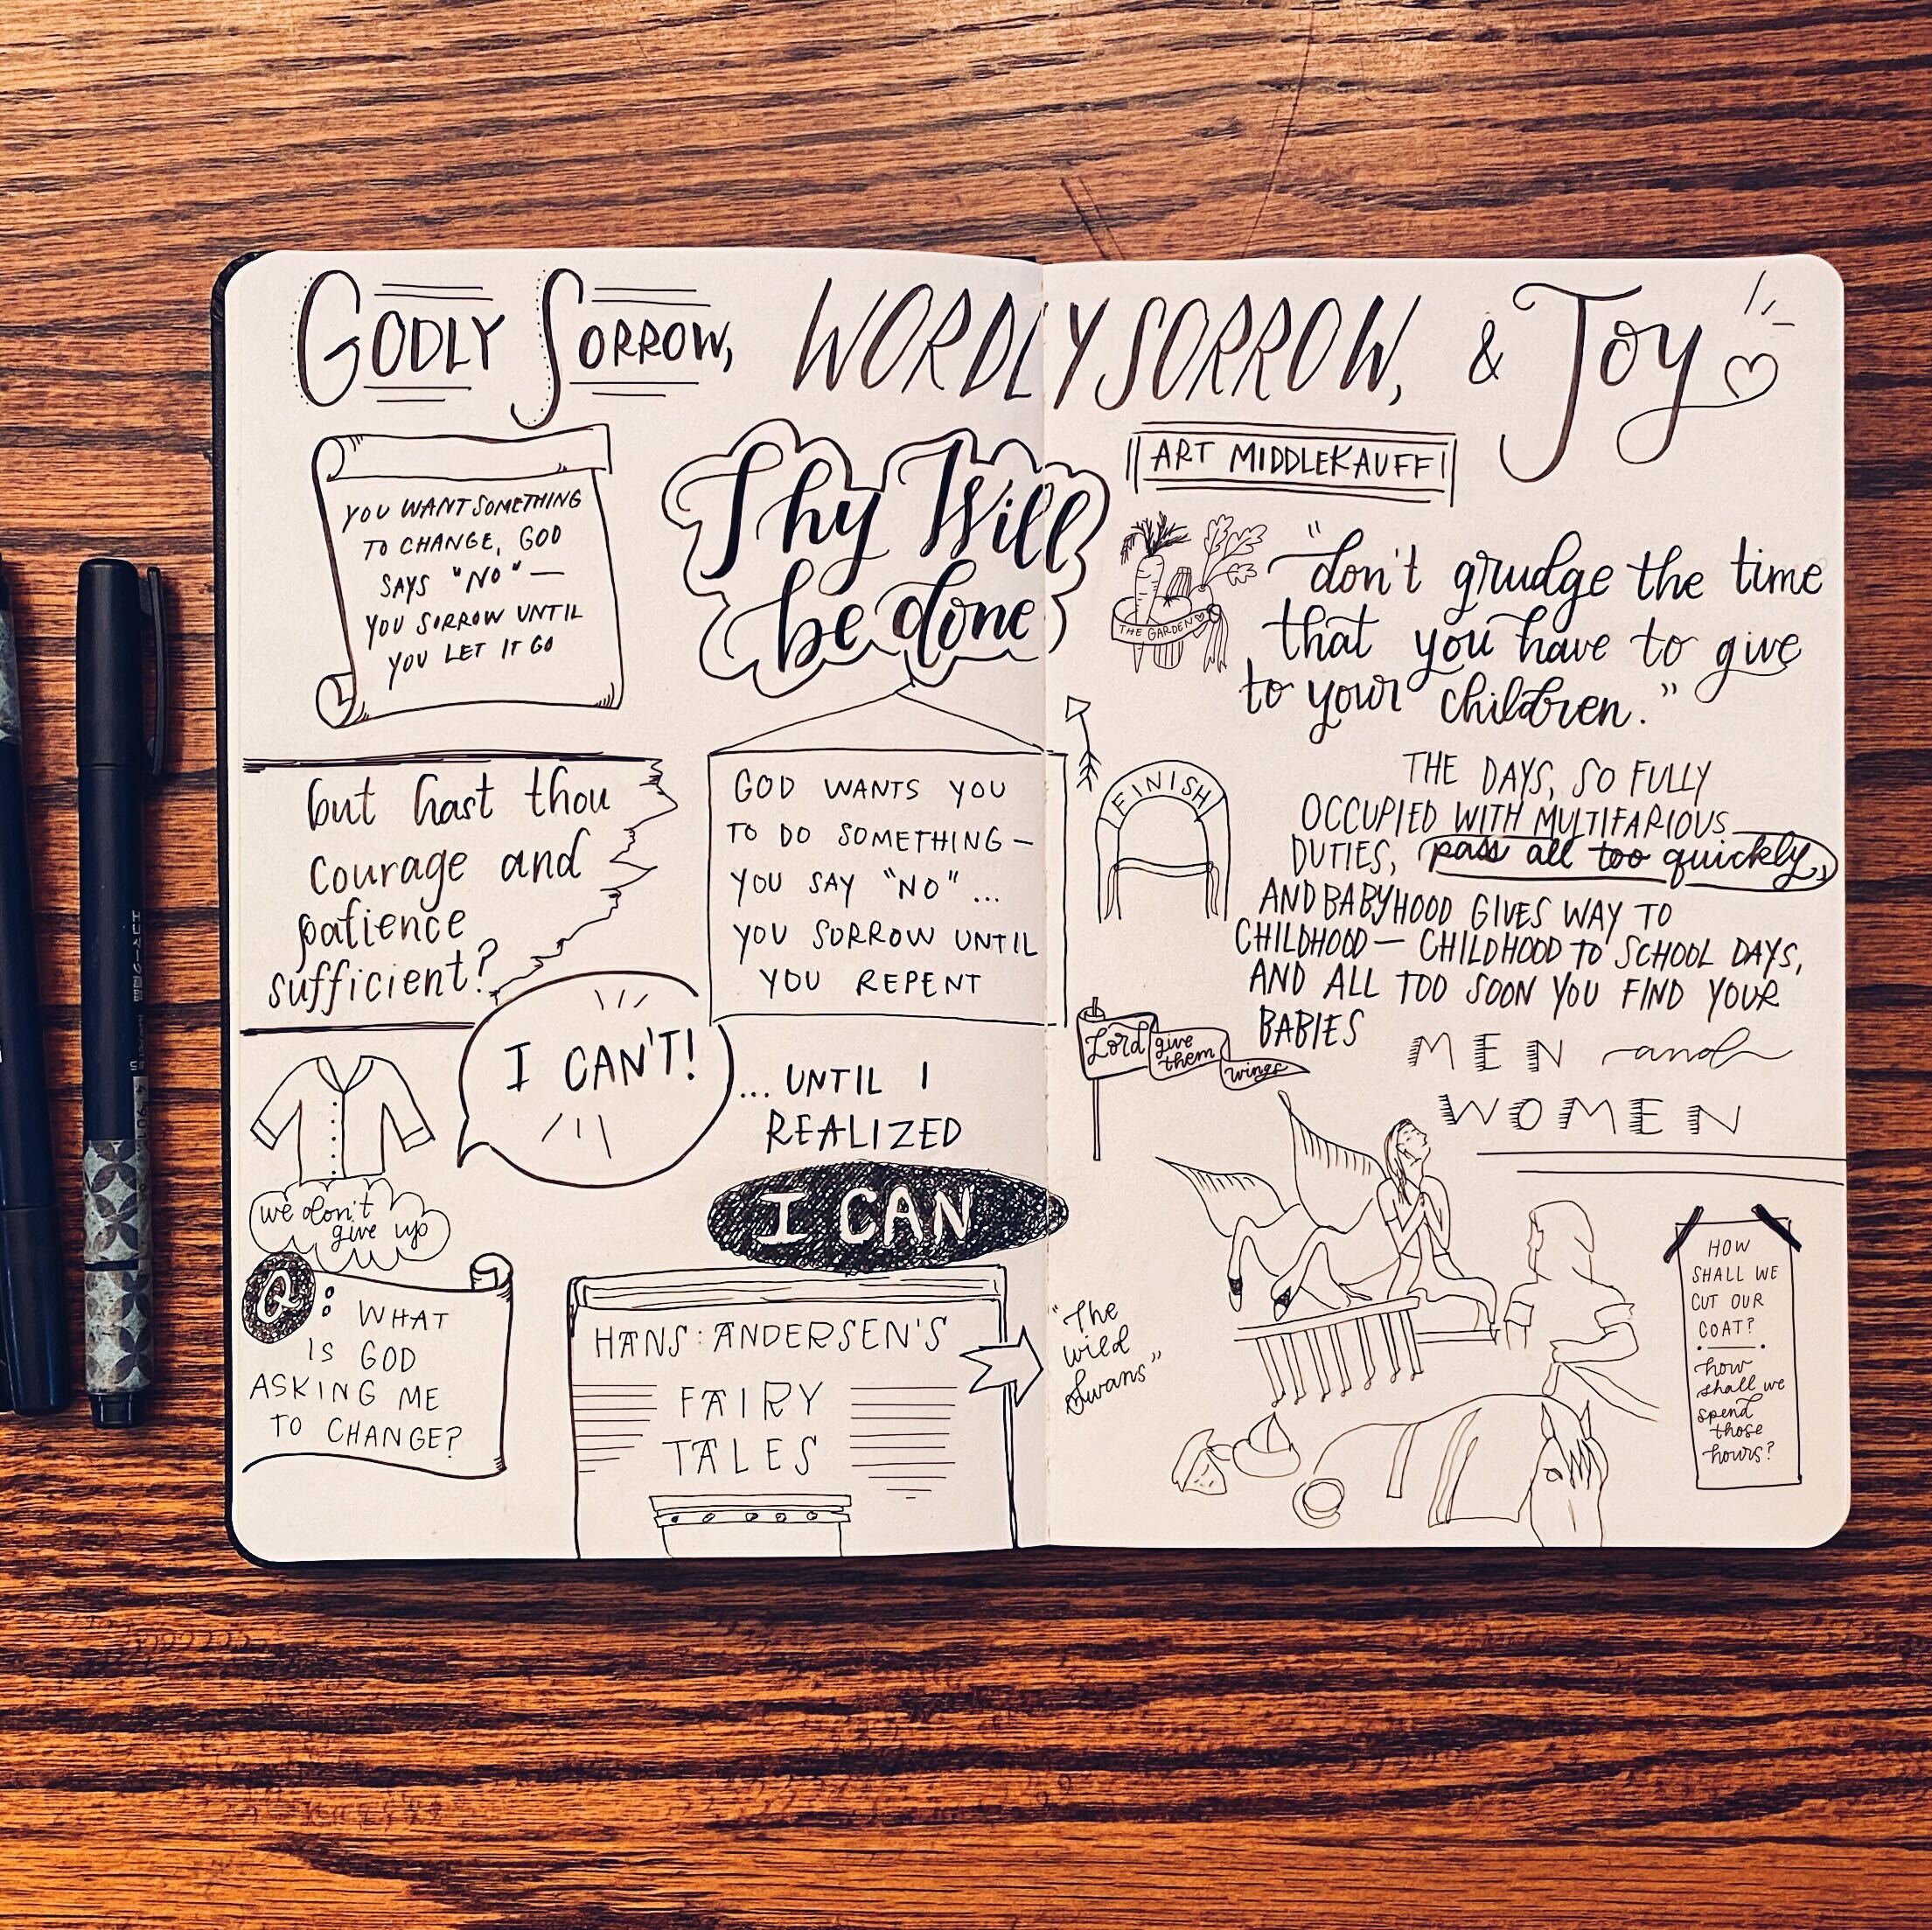 GODLY SORROW, WORDLY SORROW, & Joy
ART MIDDLEKAUFF
YOU WANT SOMETHING
TO CHANGE, GOD
SAYS "NO" —
YOU SORROW UNTIL
YOU LET IT GO
Thy Will
be done
but hast thou
courage and
patience
sufficient?
GOD WANTS YOU
TO DO SOMETHING —
YOU SAY "NO"...
YOU SORROW UNTIL
YOU REPENT
I CAN'T!
...UNTIL I
REALIZED
I CAN
we don't
give up
Q: WHAT
IS GOD
ASKING ME
TO CHANGE?
HANS : ANDERSEN'S
FAIRY
TALES
THE GARDEN
"don't grudge the time
that you have to give
to your children."
FINISH
THE DAYS, SO FULLY
OCCUPIED WITH MULTIFARIOUS
DUTIES, pass all too quickly,
AND BABYHOOD GIVES WAY TO
CHILDHOOD — CHILDHOOD TO SCHOOL DAYS,
AND ALL TOO SOON YOU FIND YOUR
BABIES
MEN and
WOMEN
Lord give
them
wings
"The
wild
Swans"
HOW
SHALL WE
CUT OUR
COAT?
how
shall we
spend
those
hours?